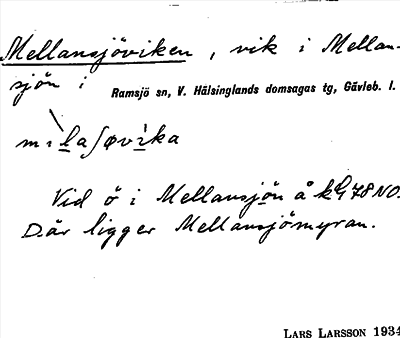 Mellansjöviken, vik i Mellan-
sjön i Ramsjö sn, V. Hälsinglands domsagas tg, Gävleb. l.
Vid ö i Mellansjön å
Där ligger Mellansjömyran.
LARS LARSSON 1934